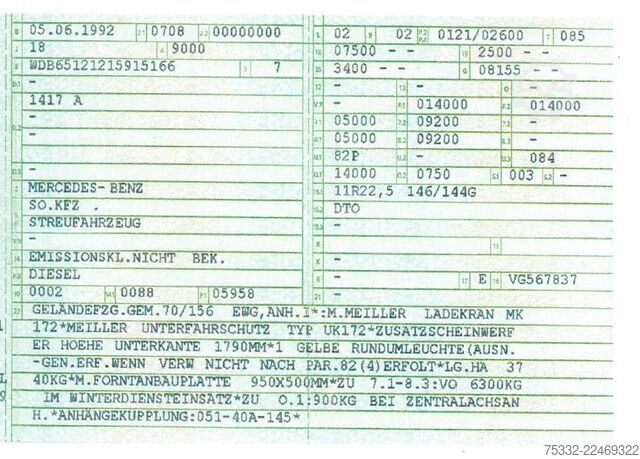 B 05.06.1992 2.1 0708 2.2 00000000
J 18 4 9000
E WDB65121215915166 3 7
D.1 -
1417 A
D.2 -
-
D.3 -
2 MERCEDES-BENZ
5 SO.KFZ .
STREUFAHRZEUG
V.9 -
14 EMISSIONSKL.NICHT BEK.
P.3 DIESEL
10 0002 14.1 0088 P.1 05958
L 02 9 02 P.2 P.4 0121/02600 T 085
18 07500 - - 19 2500 - -
20 3400 - - G 08155 - -
12 - 13 - Q -
V.7 - F.1 014000 F.2 014000
7.1 05000 7.2 09200 7.3 -
8.1 05000 8.2 09200 8.3 -
U.1 82P U.2 - U.3 084
O.1 14000 O.2 0750 S.1 003 S.2 -
15.1 11R22,5 146/144G
15.2 DTO
15.3 -
R - 11
K -
6 - 17 E 16 VG567837
21 -
22 GELÄNDEFZG.GEM.70/156 EWG,ANH.I*:M.MEILLER LADEKRAN MK
172*MEILLER UNTERFAHRSCHUTZ TYP UK172*ZUSATZSCHEINWERF
ER HOEHE UNTERKANTE 1790MM*1 GELBE RUNDUMLEUCHTE(AUSN.
-GEN.ERF.WENN VERW NICHT NACH PAR.82(4)ERFOLT*LG.HA 37
40KG*M.FORNTANBAUPLATTE 950X500MM*ZU 7.1-8.3:VO 6300KG
IM WINTERDIENSTEINSATZ*ZU O.1:900KG BEI ZENTRALACHSAN
H.*ANHÄNGEKUPPLUNG:051-40A-145*
75332-22469322